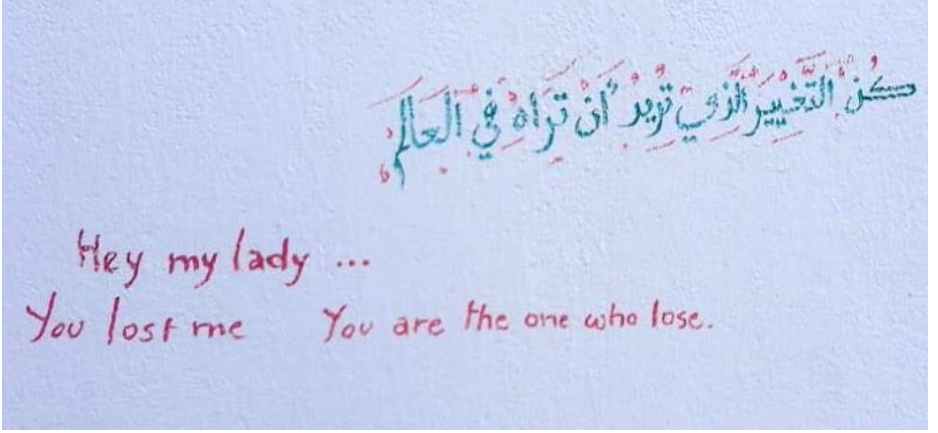 كُنْ التَّغْيِيرَ الَّذِي تُرِيدُ أَنْ تَرَاهُ فِي الْعَالَمِ
Hey my lady ...
You lost me You are the one who lose.